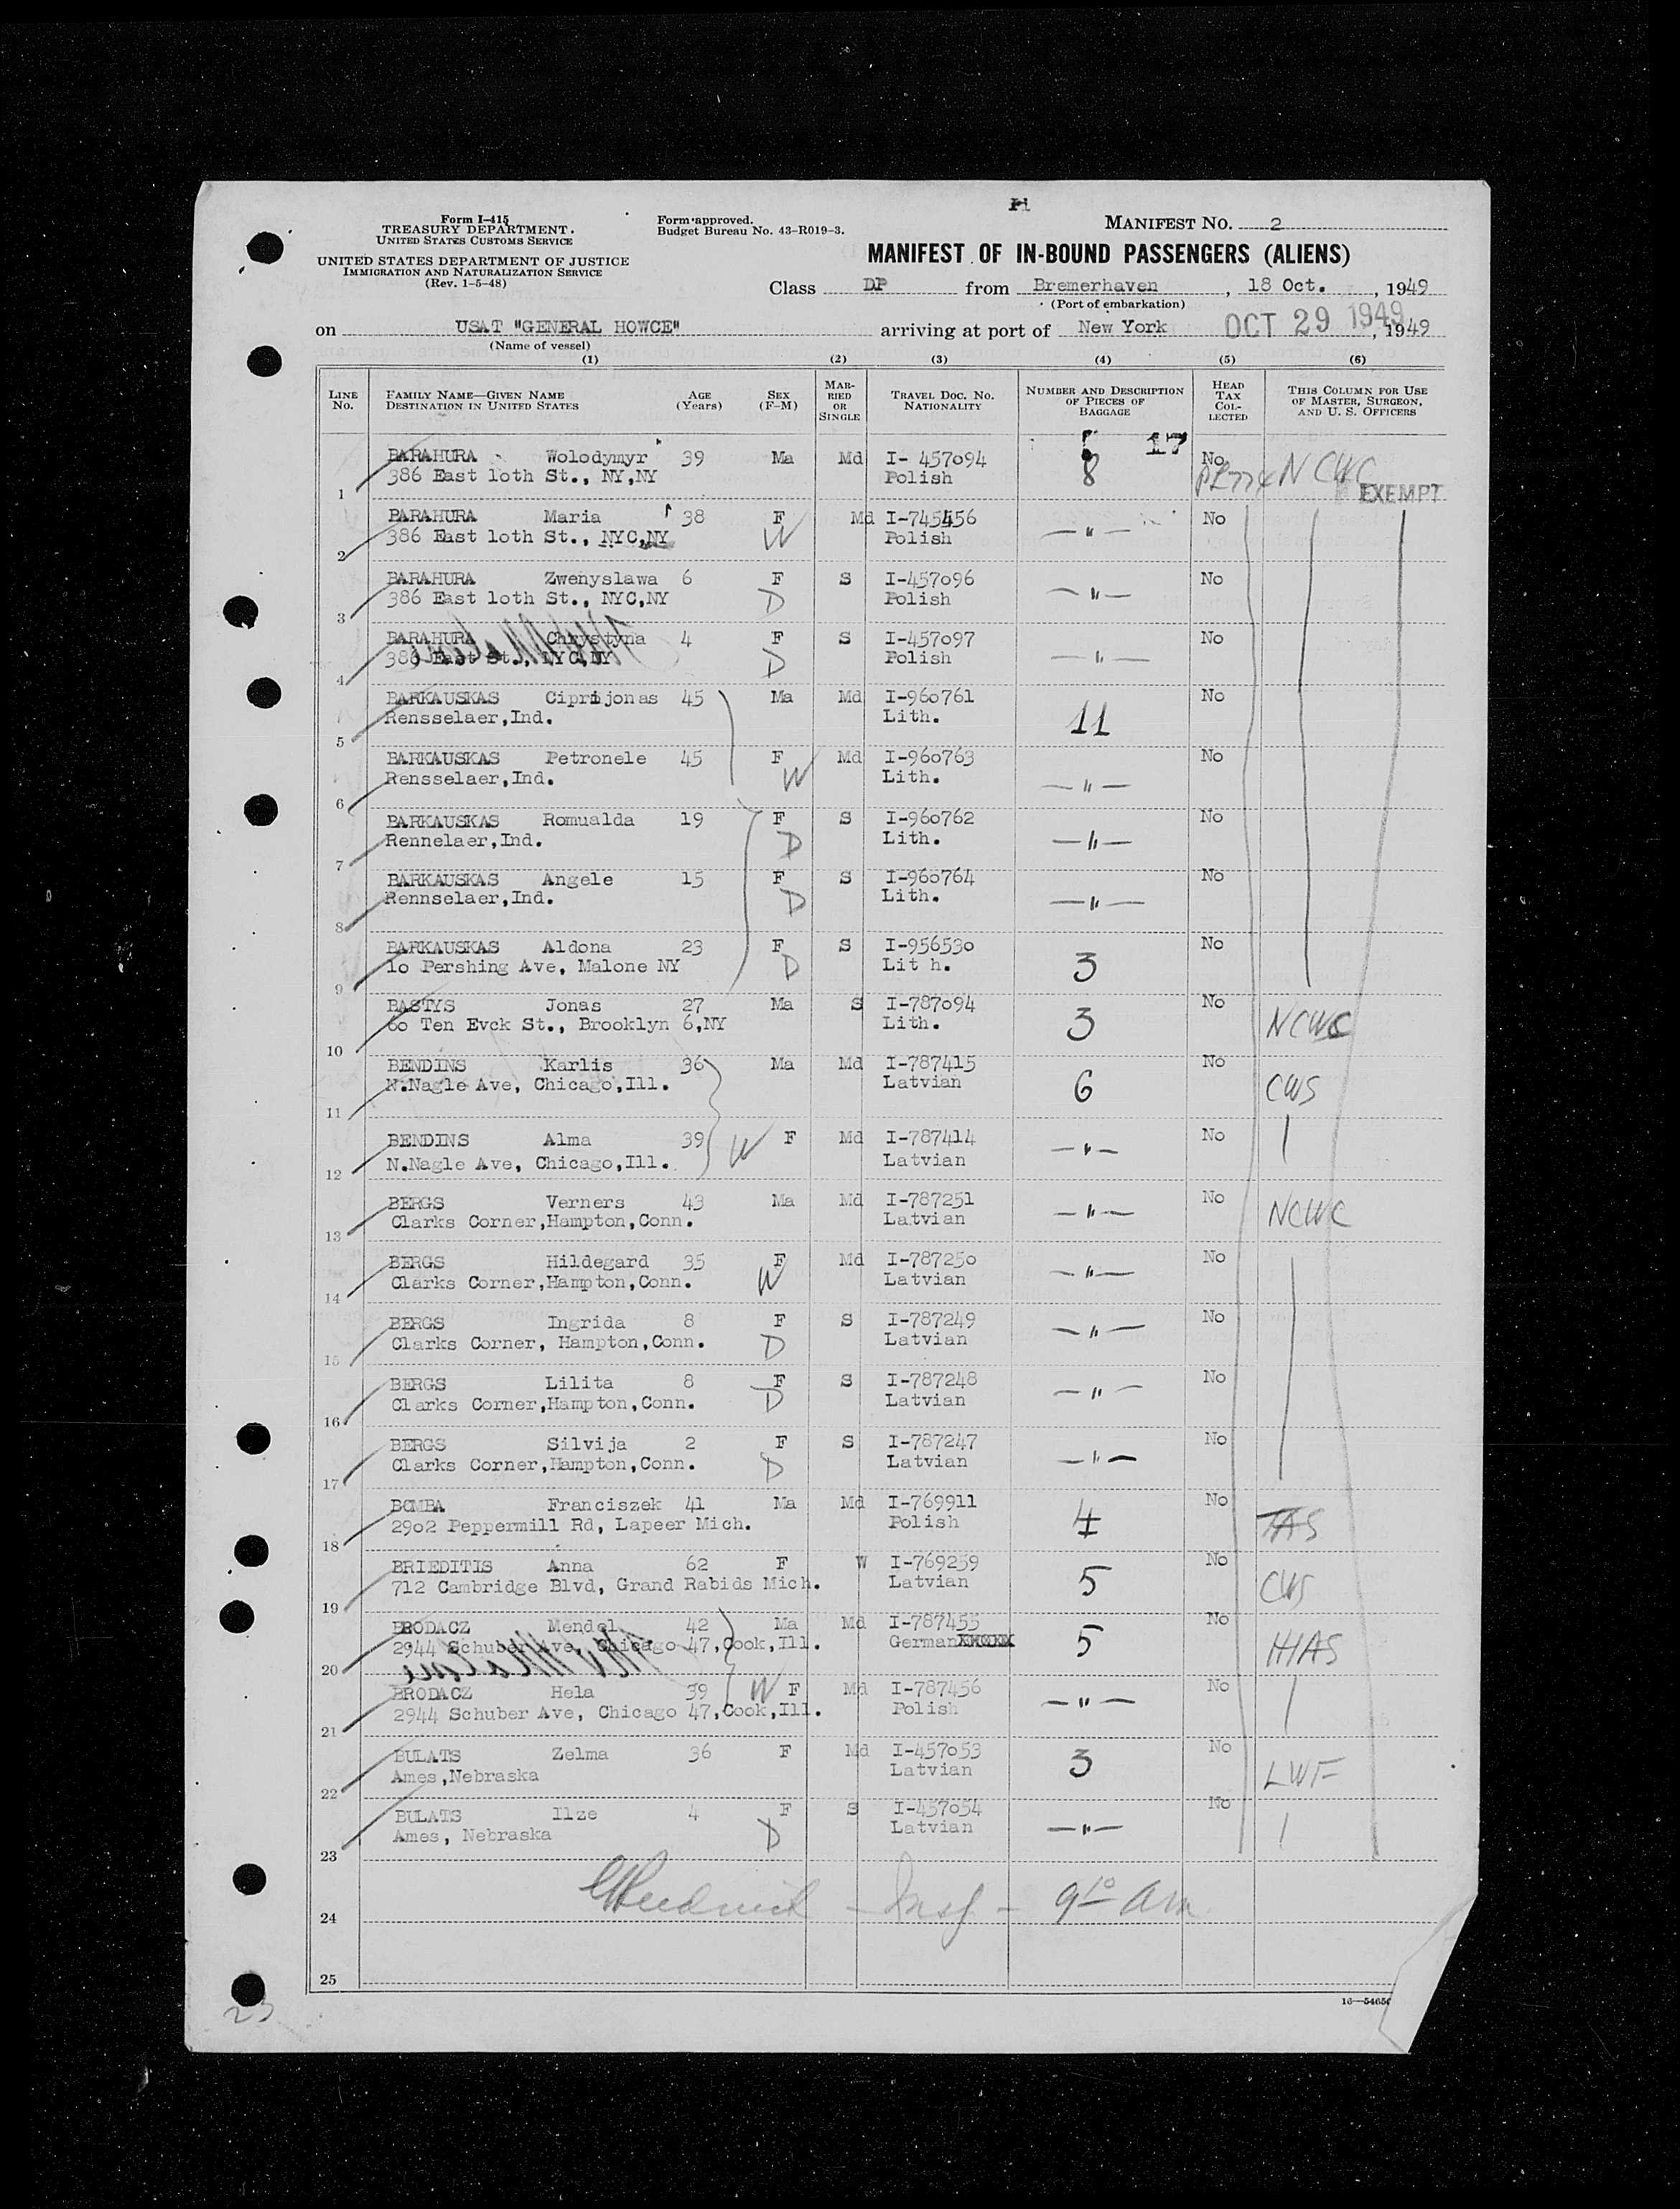 Form I-415
TREASURY DEPARTMENT.
UNITED STATES CUSTOMS SERVICE
UNITED STATES DEPARTMENT OF JUSTICE
IMMIGRATION AND NATURALIZATION SERVICE
(Rev. 1-5-48)
Form approved.
Budget Bureau No. 43-R019-3.
MANIFEST NO. 2
MANIFEST OF IN-BOUND PASSENGERS (ALIENS)
Class DP from Bremerhaven, 18 Oct., 1949
(Port of embarkation)
on USAT "GENERAL HOWCE" arriving at port of New York OCT 29 1949, 1949
(Name of vessel)
(1) (2) (3) (4) (5) (6)
LINE No. FAMILY NAME—GIVEN NAME DESTINATION IN UNITED STATES AGE (Years) SEX (F-M) MARRIED OR SINGLE TRAVEL DOC. NO. NATIONALITY NUMBER AND DESCRIPTION OF PIECES OF BAGGAGE HEAD TAX COLLECTED THIS COLUMN FOR USE OF MASTER, SURGEON, AND U. S. OFFICERS
17
BARAHURA Wolodymyr 39 Ma Md I- 457094 8 No NCWC
1 386 East loth St., NY,NY Polish EXEMPT
BARAHURA Maria 38 F Md I-745456 —"— No
2 386 East loth St., NYC,NY W Polish
BARAHURA Zwenyslawa 6 F S I-457096 —"— No
3 386 East loth St., NYC,NY D Polish
BARAHURA Chrystyna 4 F S I-457097 —"— No
4 386 East St., NYC,NY D Polish
BARKAUSKAS Ciprijonas 45 Ma Md I-960761 11 No
5 Rensselaer,Ind. Lith.
BARKAUSKAS Petronele 45 F Md I-960763 —"— No
6 Rensselaer,Ind. W Lith.
BARKAUSKAS Romualda 19 F S I-960762 —"— No
7 Rennelaer,Ind. D Lith.
BARKAUSKAS Angele 15 F S I-960764 —"— No
8 Rennselaer,Ind. D Lith.
BARKAUSKAS Aldona 23 F S I-956530 3 No
9 lo Pershing Ave, Malone NY D Lit h.
BASTYS Jonas 27 Ma S I-787094 3 No NCWC
10 6o Ten Evck St., Brooklyn 6,NY Lith.
BENDINS Karlis 36 Ma Md I-787415 6 No CWS
11 N.Nagle Ave, Chicago,Ill. Latvian
BENDINS Alma 39 W F Md I-787414 —"— No
12 N.Nagle Ave, Chicago,Ill. Latvian
BERGS Verners 43 Ma Md I-787251 —"— No NCWC
13 Clarks Corner,Hampton,Conn. Latvian
BERGS Hildegard 35 F Md I-787250 —"— No
14 Clarks Corner,Hampton,Conn. W Latvian
BERGS Ingrida 8 F S I-787249 —"— No
15 Clarks Corner, Hampton,Conn. D Latvian
BERGS Lilita 8 F S I-787248 —"— No
16 Clarks Corner,Hampton,Conn. D Latvian
BERGS Silvija 2 F S I-787247 —"— No
17 Clarks Corner,Hampton,Conn. D Latvian
BOMBA Franciszek 41 Ma Md I-769911 4 No TAS
18 29o2 Peppermill Rd, Lapeer Mich. Polish
BRIEDITIS Anna 62 F W I-769259 5 No CWS
19 712 Cambridge Blvd, Grand Rabids Mich. Latvian
BRODACZ Mendel 42 Ma Md I-787455 5 No HIAS
20 2944 Schuber Ave, Chicago 47,Cook,Ill. German
BRODACZ Hela 39 W F Md I-787456 —"— No
21 2944 Schuber Ave, Chicago 47,Cook,Ill. Polish
BULATS Zelma 36 F Md I-457053 3 No LWF
22 Ames,Nebraska Latvian
BULATS Ilze 4 F S I-457054 —"— No
23 Ames, Nebraska D Latvian
24 — Insp — 9 10 am
25
23